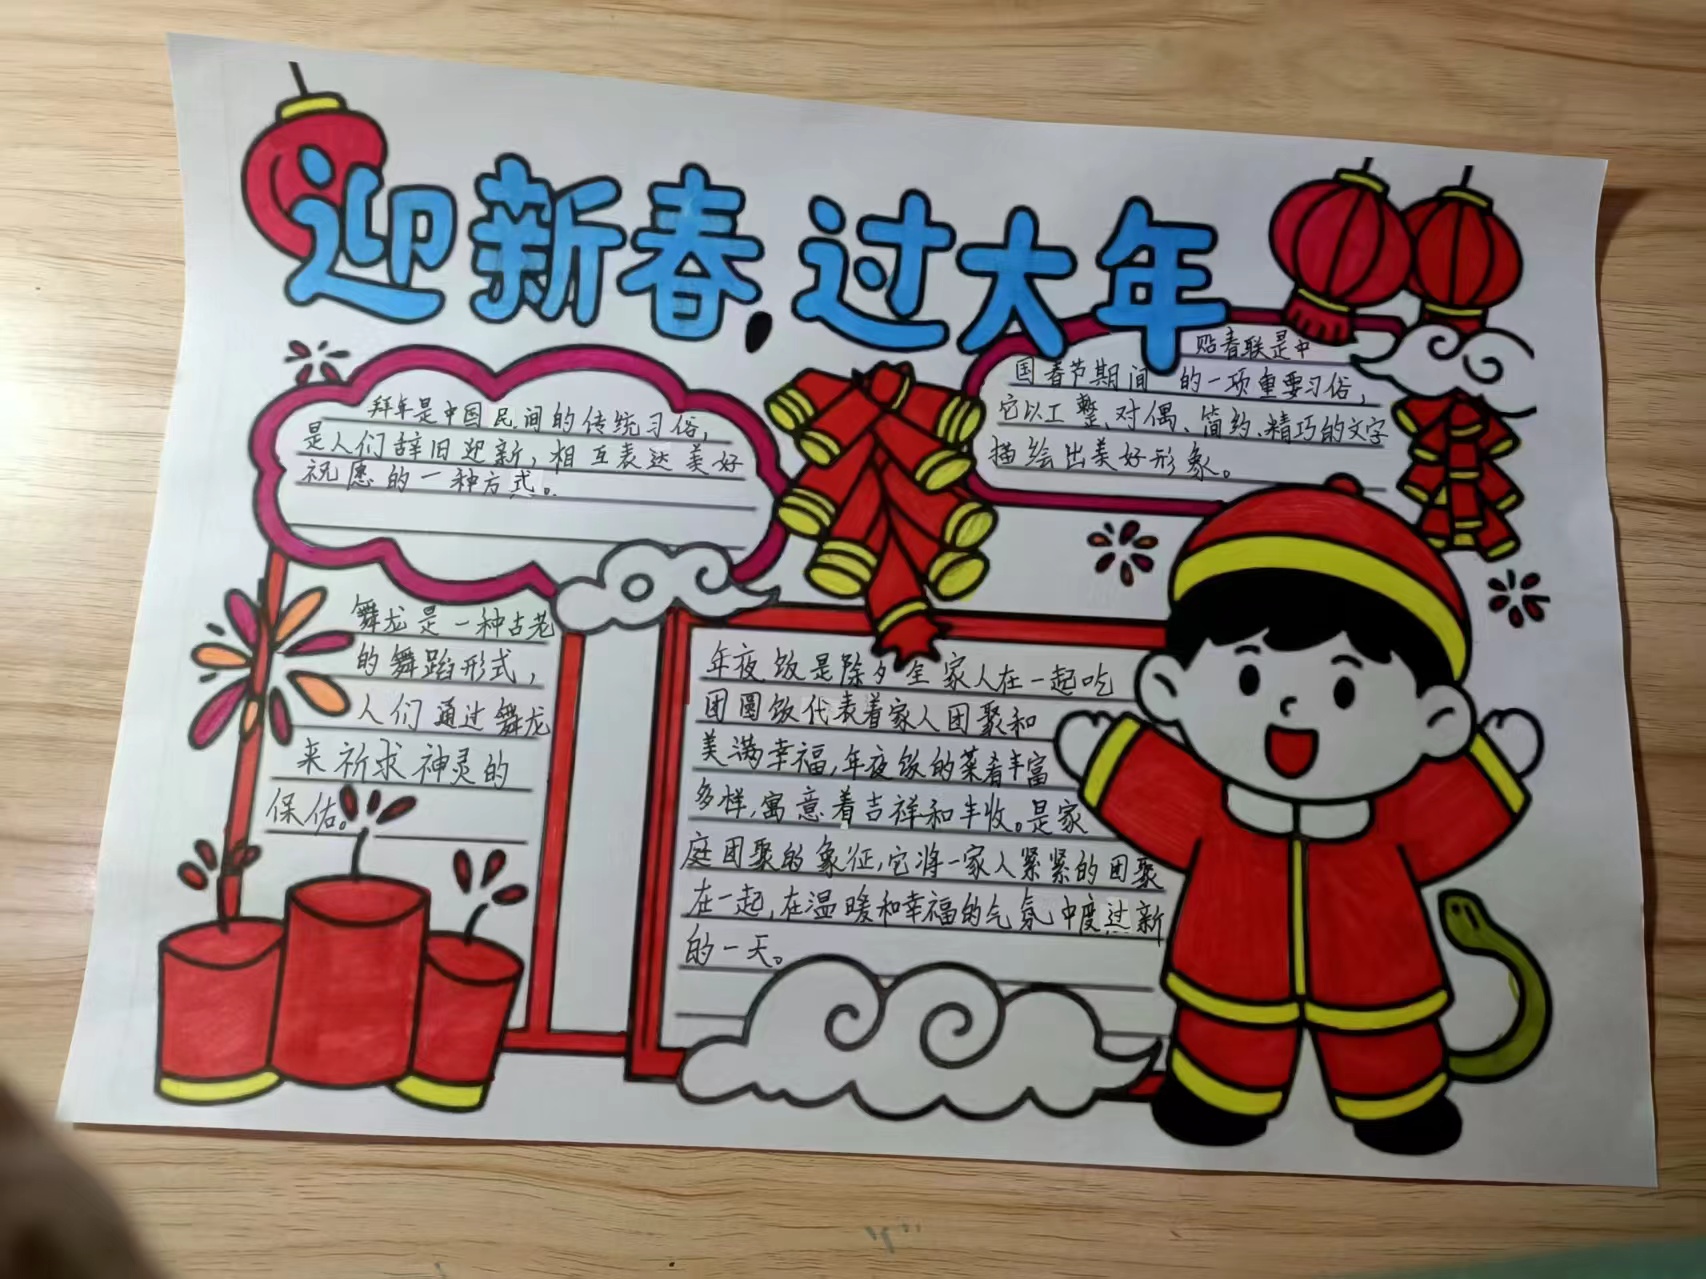 迎新春,过大年
拜年是中国民间的传统习俗,
是人们辞旧迎新,相互表达美好
祝愿的一种方式。
贴春联是中
国春节期间 的一项重要习俗,
它以工整、对偶、简约、精巧的文字
描绘出美好形象。
舞龙是一种古老
的舞蹈形式,
人们通过舞龙
来祈求神灵的
保佑。
年夜饭是除夕全家人在一起吃
团圆饭代表着家人团聚和
美满幸福,年夜饭的菜肴丰富
多样,寓意着吉祥和丰收。是家
庭团聚的象征,它将一家人紧紧的团聚
在一起,在温暖和幸福的气氛中度过新
的一天。